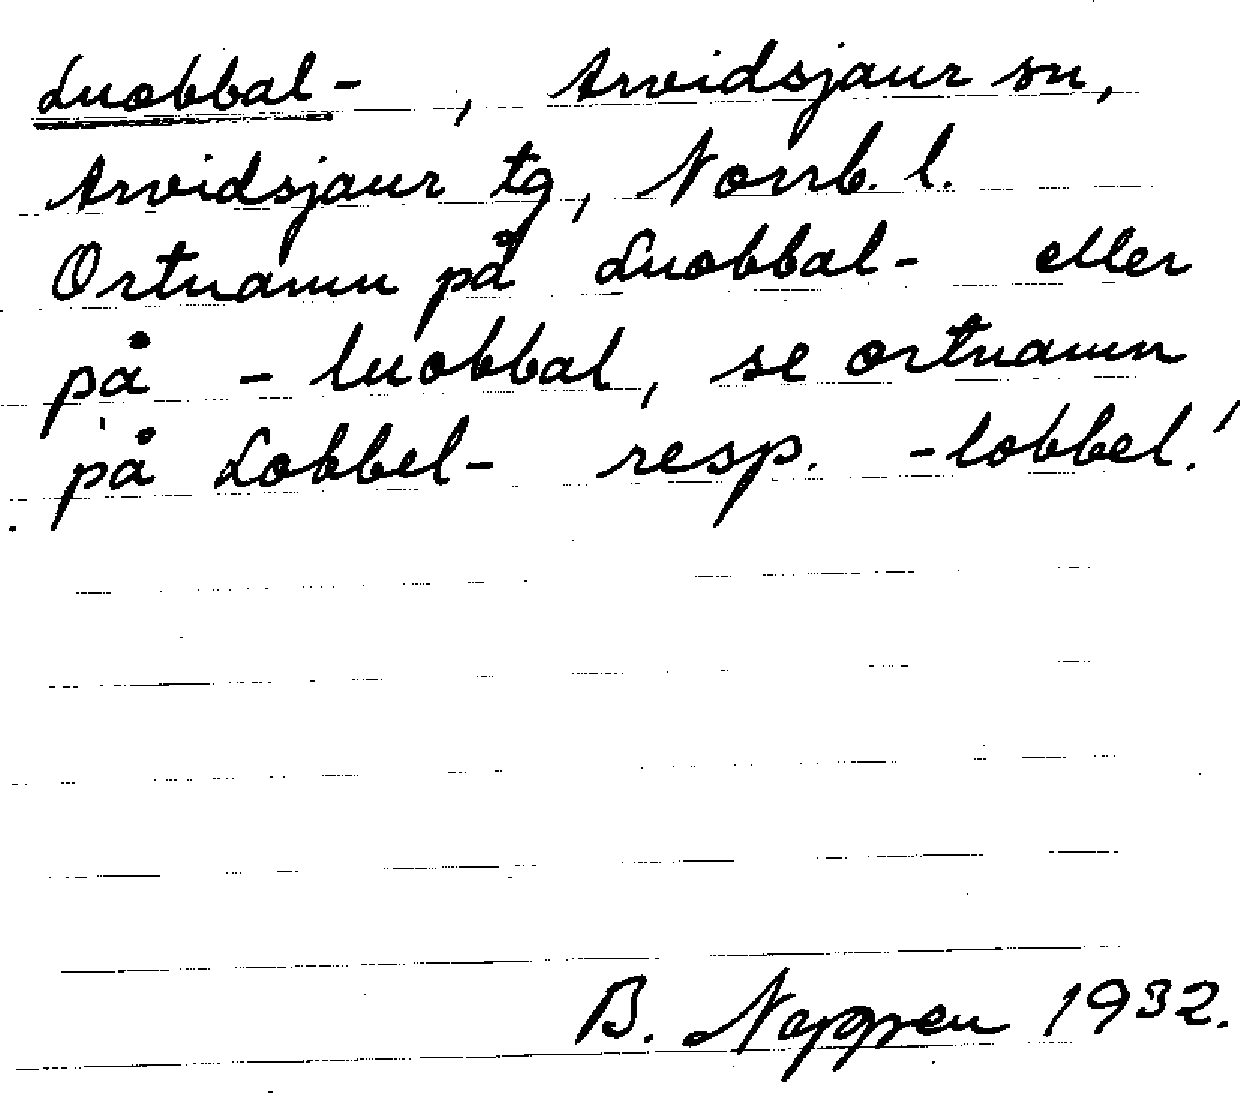 Luobbal- , Arvidsjaur sn,
Arvidsjaur tg, Norrb. l.
Ortnamn på Luobbal- eller
på -luobbal, se ortnamn
på Lobbel- resp. -lobbel.!
B. Nappen 1932.